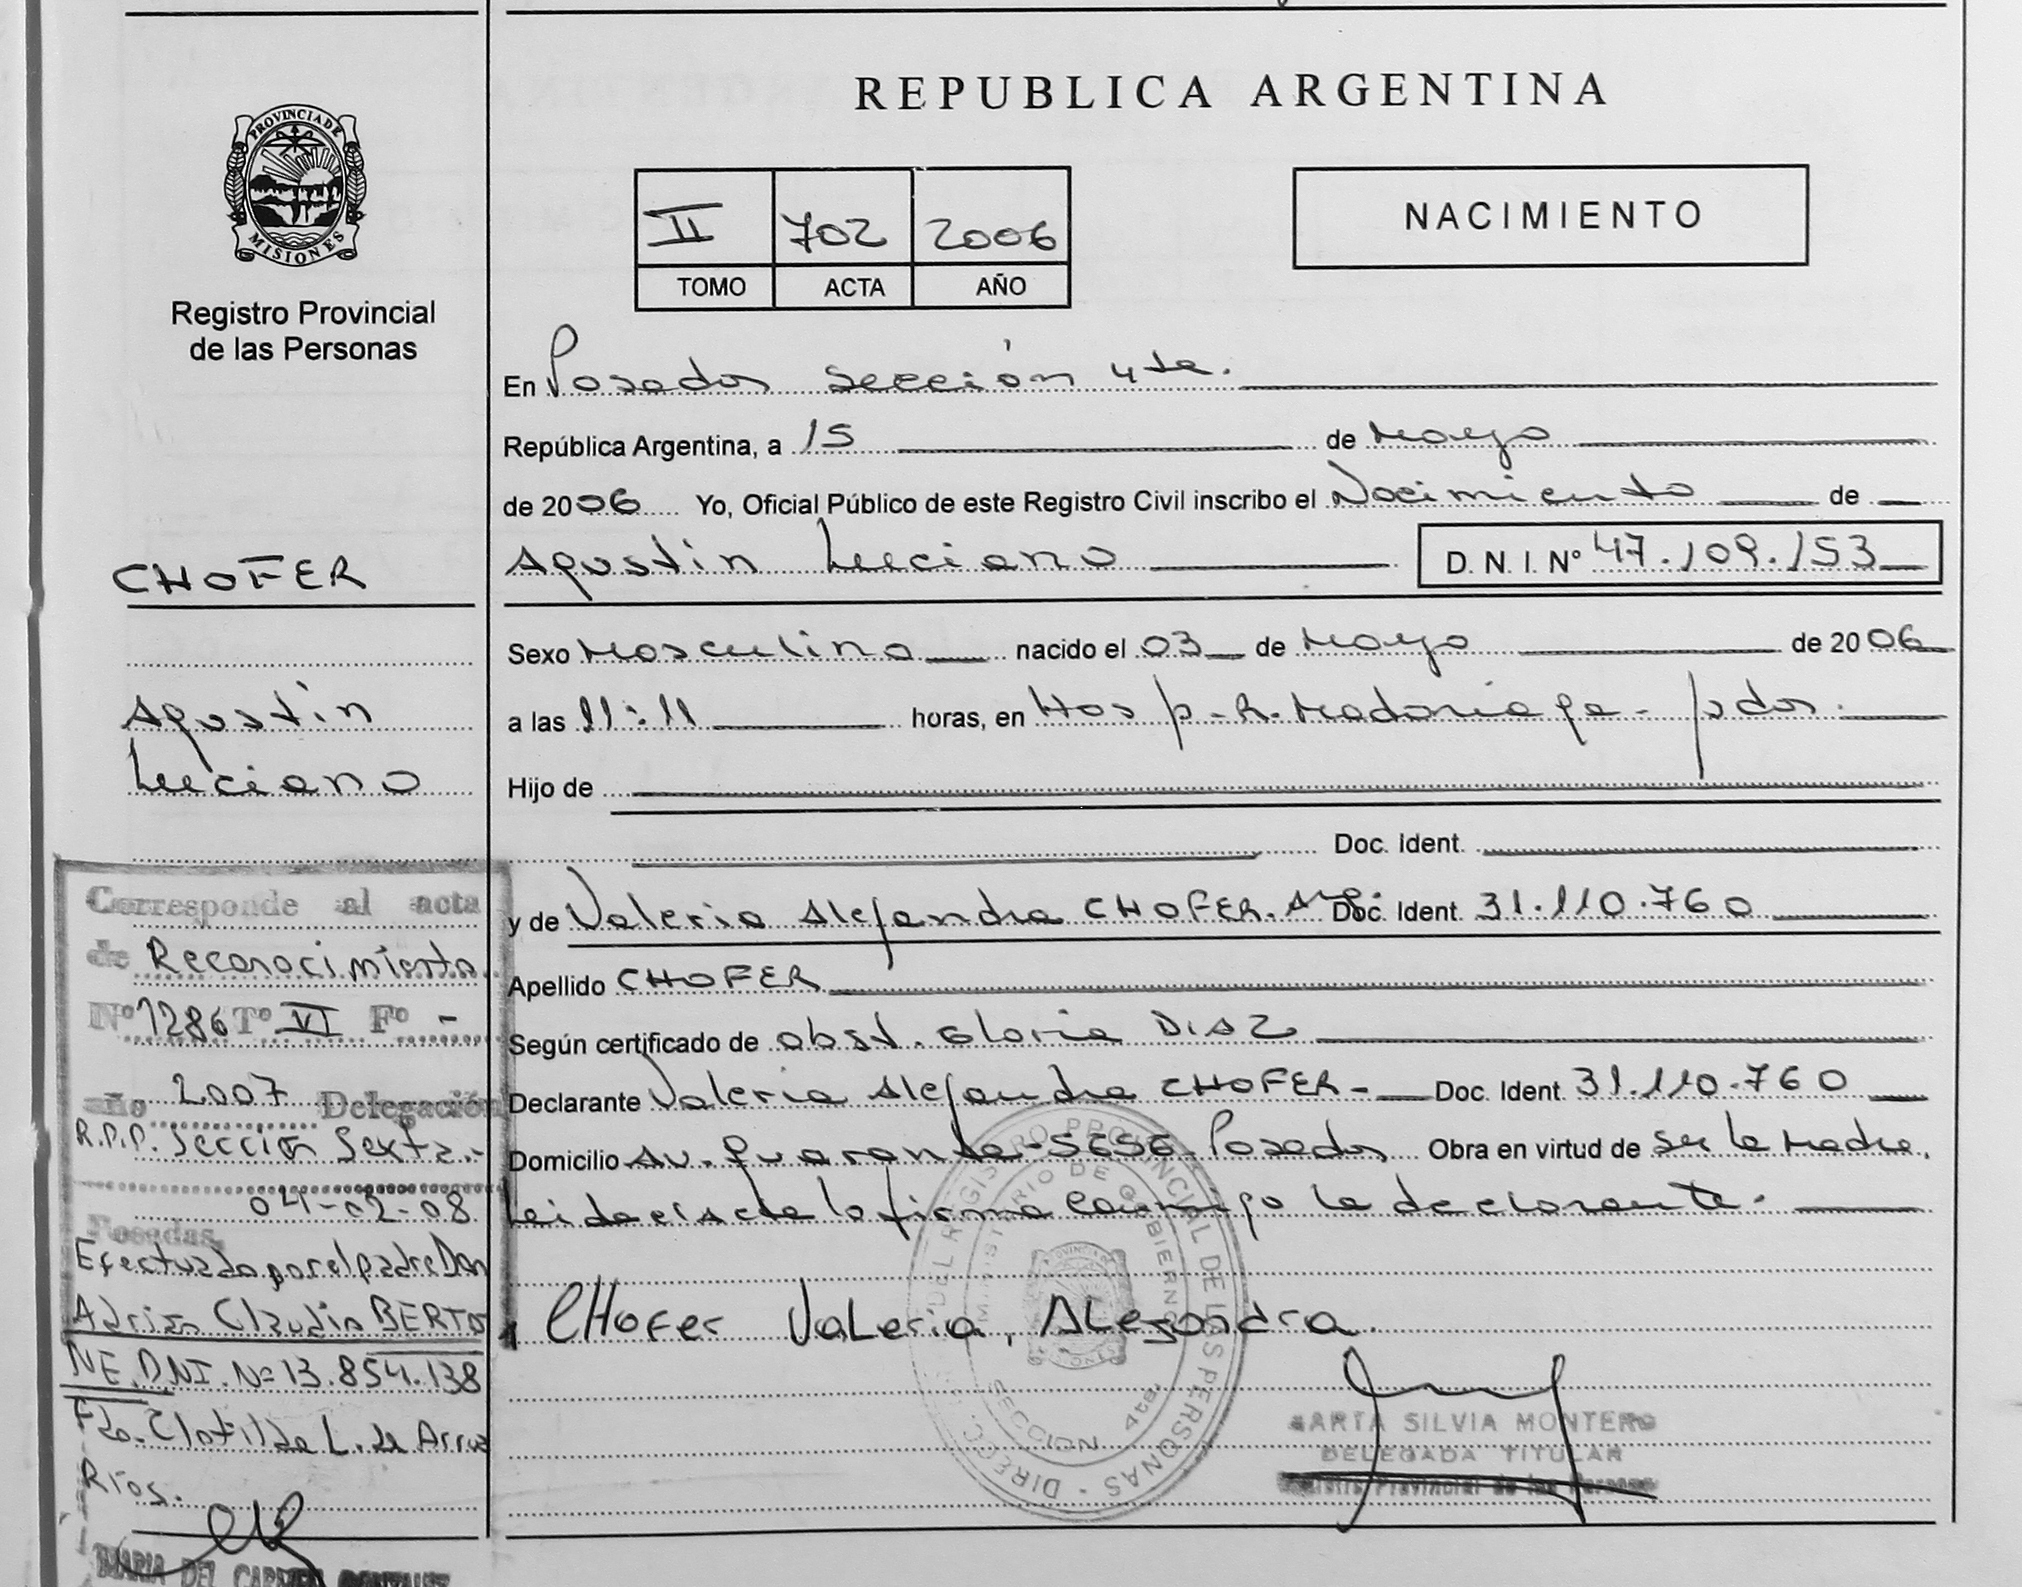 REPUBLICA ARGENTINA
PROVINCIA DE
MISIONES
Registro Provincial
de las Personas
II 702 2006
TOMO ACTA AÑO
NACIMIENTO
En Posadas sección 4ta.
República Argentina, a 15 de Mayo
de 2006 Yo, Oficial Público de este Registro Civil inscribo el Nacimiento de
CHOFER
Agustin Luciano D. N. I. Nº 47.109.153
Sexo Masculino nacido el 03 de Mayo de 2006
Agustin
Luciano
a las 11:11 horas, en Hosp. R. Madariaga - pdas.
Hijo de
Doc. Ident.
y de Valeria Alejandra CHOFER. Arg. Doc. Ident. 31.110.760
Apellido CHOFER
Según certificado de obst. Gloria DIAZ
Declarante Valeria Alejandra CHOFER - Doc. Ident. 31.110.760
Domicilio Av. Quaranta - 5656 Posadas Obra en virtud de ser la madre,
leida el acta la firma conmigo la declarante.
CHOFer VaLeria, ALejandra
MARTA SILVIA MONTERO
DELEGADA TITULAR
Registro Provincial de las Personas
DIRECC. DEL REGISTRO PROVINCIAL DE LAS PERSONAS -
MINISTERIO DE GOBIERNO
SECCION 4ta.
Corresponde al acta
de Reconocimiento
Nº 1286 Tº VI Fº -
año 2007 Delegación
R.P.P. Sección Sexta.-
Posadas, 04-02-08
Efectuado por el padre Don
Adrian Claudio BERTO
NE. DNI. Nº 13.854.138
Fdo. Clotilde L. de
Ríos.
MARIA DEL CARMEN GONZALEZ